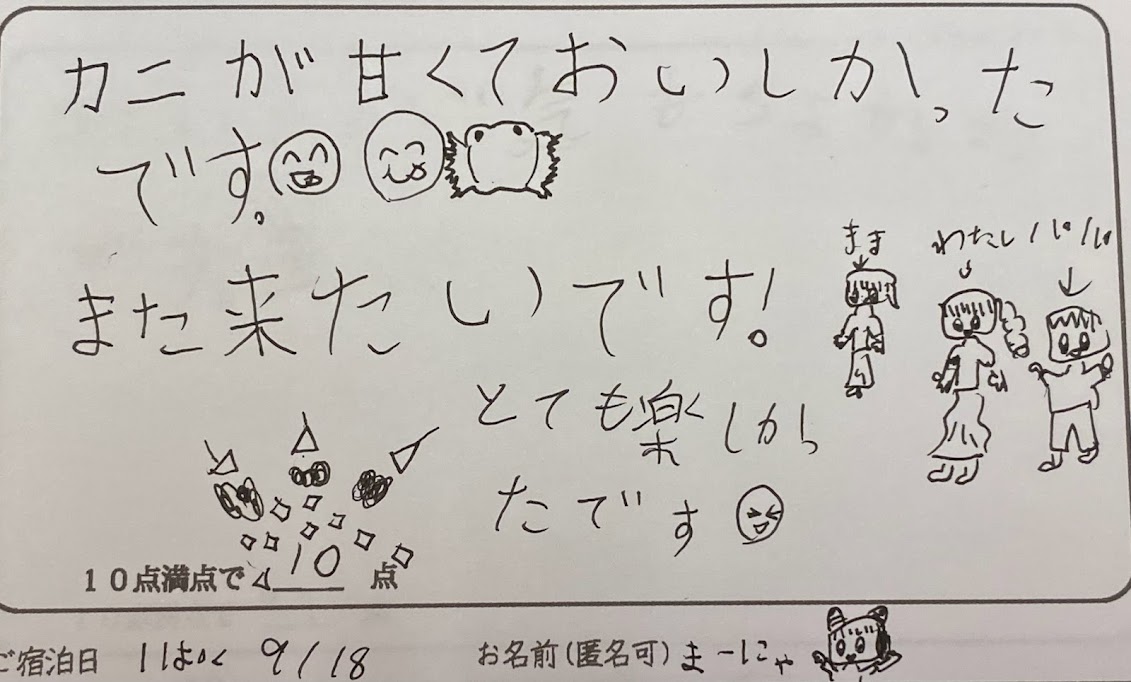 カニが甘くておいしかった
です。
また来たいです!
まま
わたし
パパ
とても楽しかっ
たです
10点満点で 10 点
ご宿泊日 1ぱく 9/18
お名前(匿名可) まーにゃ